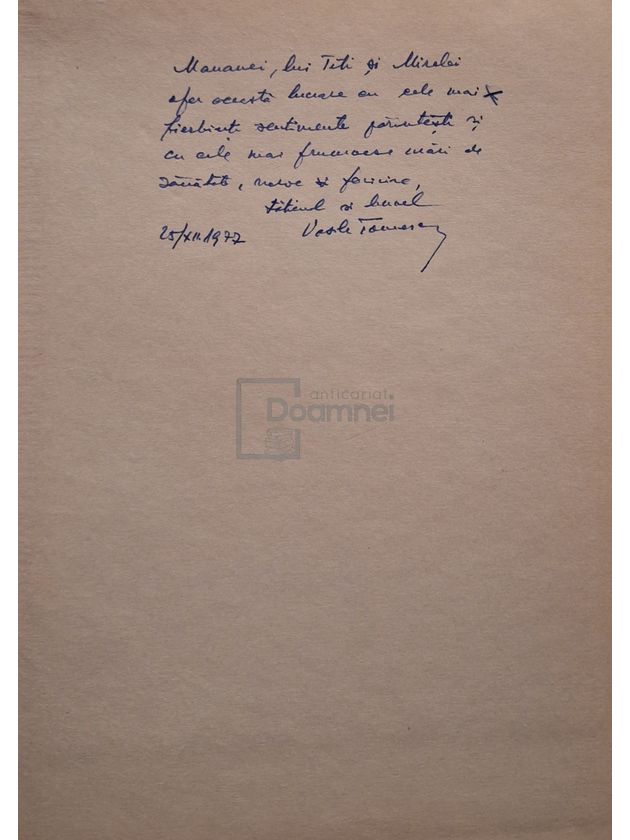 Marianei, lui Titi și Mirelei
ofer această lucrare cu cele mai
fierbinți sentimente părintești și
cu cele mai frumoase urări de
sănătate, noroc și fericire,
tăticul și bunel
25/XII.1977 Vasile Tomescu
anticariat
Doamnei